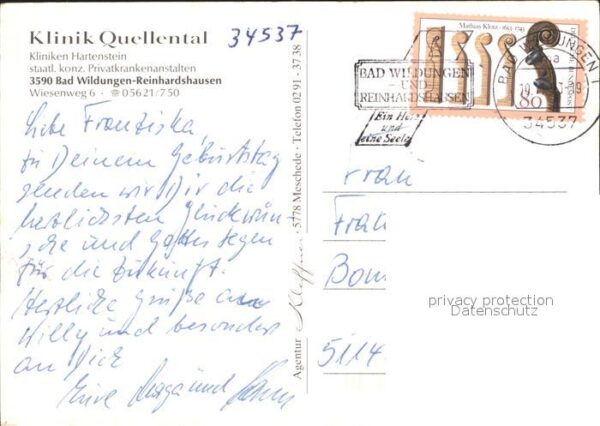 Klinik Quellental
Kliniken Hartenstein
staatl. konz. Privatkrankenanstalten
3590 Bad Wildungen-Reinhardshausen
Wiesenweg 6 · ☎ 05621/750
34537
Liebe Franziska,
zu Deinem Geburtstag
senden wir Dir die
herzlichsten Glückwün-
sche und Gottes Segen
für die Zukunft.
Herzliche Grüße an
Willy und besonders
an Dich
Eure und
Agentur 5778 Meschede · Telefon 02 91 - 37 38
Mathias Klotz · 1653-1743
80
BAD WILDUNGEN
- UND -
REINHARDSHAUSEN
Ein Herz
und
eine Seele
BAD WILDUNGEN 1
34537
Frau
Fran
Bom
5114
privacy protection
Datenschutz